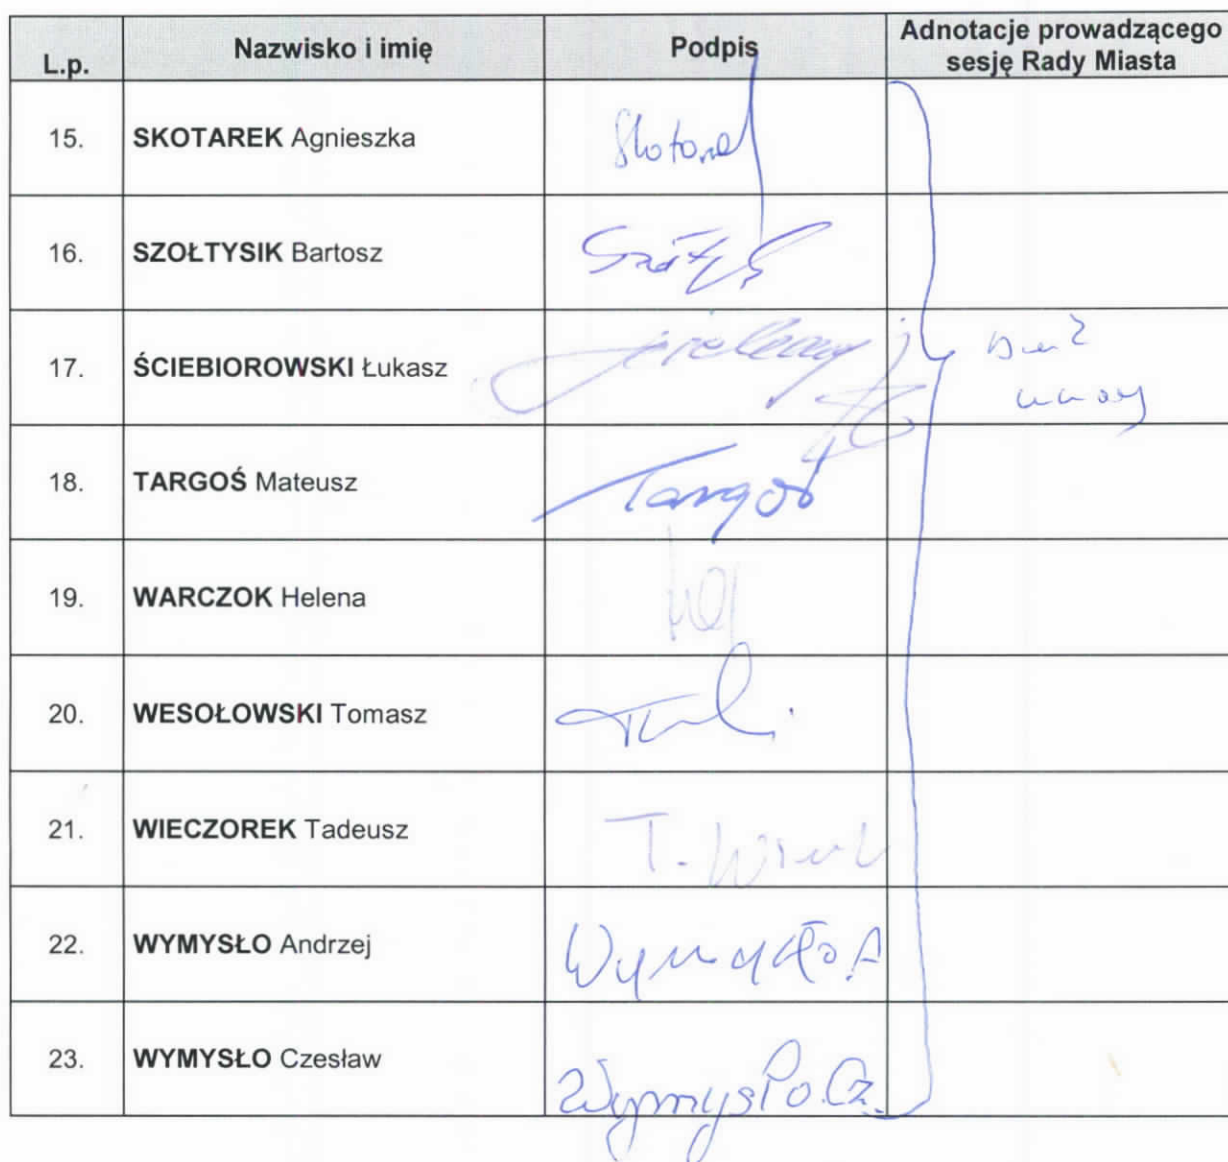 L.p. Nazwisko i imię Podpis Adnotacje prowadzącego
sesję Rady Miasta
15. SKOTAREK Agnieszka
16. SZOŁTYSIK Bartosz
17. ŚCIEBIOROWSKI Łukasz
18. TARGOŚ Mateusz Targoś
19. WARCZOK Helena
20. WESOŁOWSKI Tomasz
21. WIECZOREK Tadeusz
22. WYMYSŁO Andrzej Wymysło A
23. WYMYSŁO Czesław Wymysło Cz.